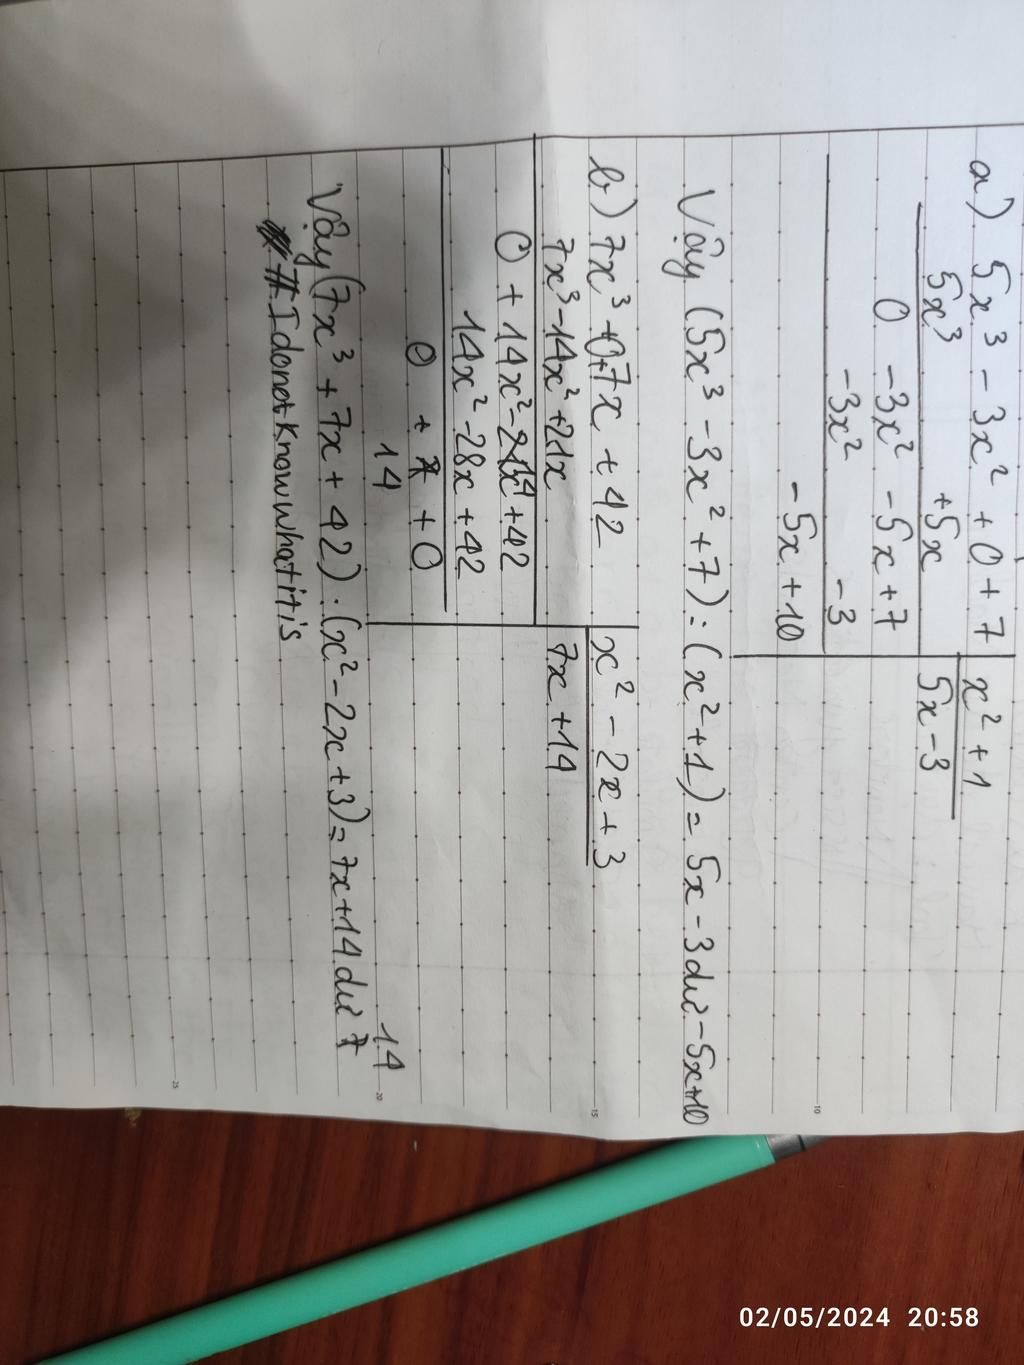 a) 5x³ - 3x² + 0 + 7 | x² + 1
5x³ +5x | 5x - 3
0 -3x² - 5x + 7
-3x² -3
-5x + 10
Vậy (5x³ - 3x² + 7) : (x² + 1) = 5x - 3 dư -5x+10
b) 7x³ + 0 + 7x + 42 | x² - 2x + 3
7x³ - 14x² + 21x | 7x + 14
0 + 14x² - 14 + 42
14x² - 28x + 42
0 + + 0
14
14
Vậy (7x³ + 7x + 42) : (x² - 2x + 3) = 7x + 14 dư 7
# I donot Know what it is
10
15
20
25
02/05/2024 20:58